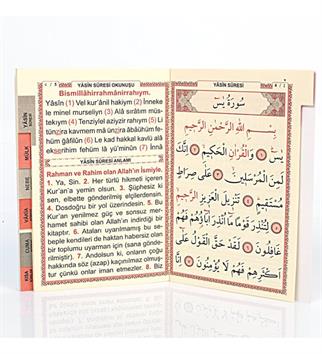 YÂSÎN SÛRESİ OKUNUŞU
Bismillâhirrahmânirrahıym.
Yâsîn (1) Vel kur'ânil hakiym (2) İnneke
le minel murseliyn (3) Alâ sırâtım müs-
tekıym (4) Tenziylel aziyzir rahıym (5) Li
tünzira kavmem mâ ünzira âbâühüm fe-
hüm ğâfilûn (6) Le kad hakkal kavlü alâ
ekserihim fehüm lâ yü'minûn (7) İnnâ
YÂSÎN SÛRESİ ANLAMI
Rahman ve Rahim olan Allah'ın İsmiyle.
1. Ya, Sin. 2. Her türlü hikmeti içeren
Kur'an'a yemin olsun. 3. Şüphesiz ki
sen, elbette gönderilmiş elçilerdensin.
4. Dosdoğru bir yol üzerindesin. 5. Bu
Kur'an yenilmez güç ve sonsuz mer-
hamet sahibi olan Allah'ın indirdiği bir
kitaptır. 6. Ataları uyarılmamış bu se-
beple kendileri de haktan habersiz olan
bir toplumu uyarman için (sana gönde-
rilmiştir). 7. Andolsun ki, onların çoğu
hakkında söz (azap) kaçınılmaz olmuş-
tur çünkü onlar iman etmezler. 8. Biz
YÂSÎN
MÜLK
NEBE
VAKIA
CUMA
KISA
YÂSÎN SÛRESİ
سُورَةُ يٰسٓ
بِسْمِ اللّٰهِ الرَّحْمٰنِ الرَّحِيمِ
يٰسٓ ﴿١﴾ وَالْقُرْاٰنِ الْحَكِيمِ ﴿٢﴾ اِنَّكَ
لَمِنَ الْمُرْسَلِينَ ﴿٣﴾ عَلٰى صِرَاطٍ
مُسْتَقِيمٍ ﴿٤﴾ تَنْزِيلَ الْعَزِيزِ الرَّحِيمِ
﴿٥﴾ لِتُنْذِرَ قَوْمًا مَٓا اُنْذِرَ اٰبَٓاؤُ۬هُمْ فَهُمْ
غَافِلُونَ ﴿٦﴾ لَقَدْ حَقَّ الْقَوْلُ عَلٰٓى
اَكْثَرِهِمْ فَهُمْ لَا يُؤْمِنُونَ ﴿٧﴾ اِنَّا